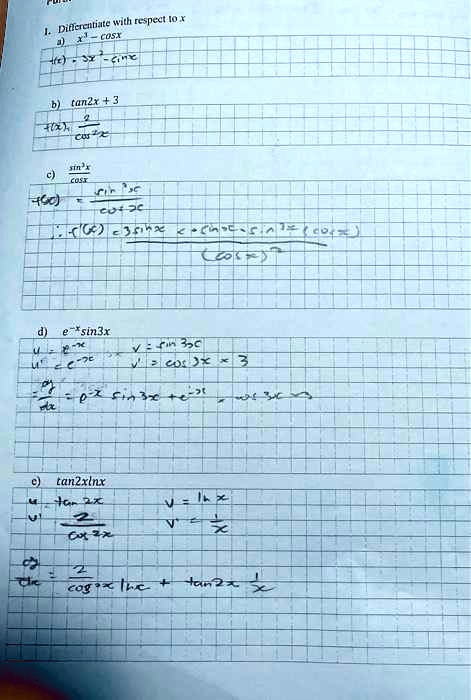 1. Differentiate with respect to x
a) x³ − cosx
f(x) = 3x² − sinx
b) tan2x + 3
f(x),
2
cos²x
c) sin³x
cosx
f(x) = sin³x
cosx
∴ f'(x) = 3sinx
(cosx)²
d) e⁻ˣsin3x
u = e⁻ˣ v = sin 3x
u' = e⁻ˣ v' = cos 3x × 3
= dy
dx = e⁻ˣ sin 3x + e⁻ˣ . cos 3x
e) tan2xlnx
u = tan 2x v = ln x
u' 2
cos 2x v' = 1
x
dy
dx = 2
cos²x lnx + tan2x 1
x